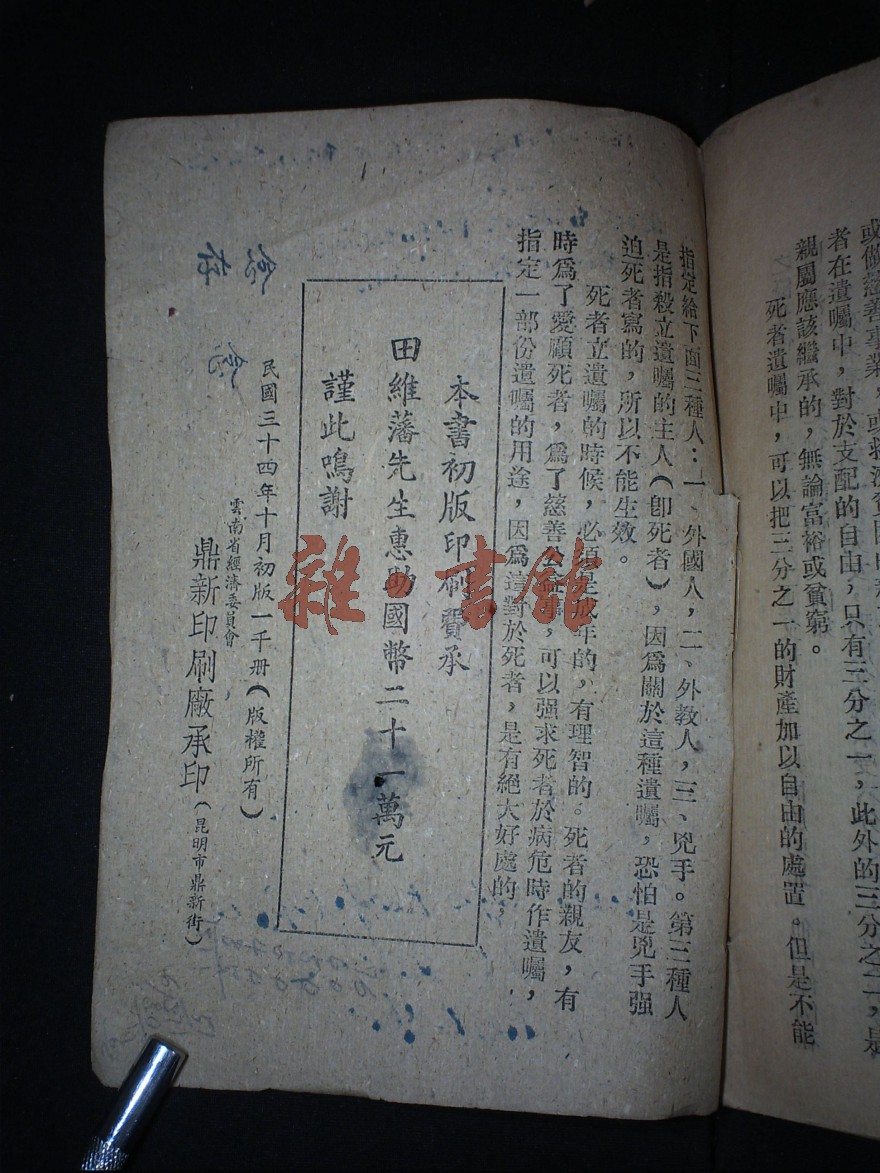 或做慈善事業,或救濟貧困
者在遺囑中,對於支配的自由,只有三分之一,此外的三分之二,是
親屬應該繼承的,無論富裕或貧窮。
死者遺囑中,可以把三分之一的財產加以自由的處置。但是不能
指定給下面三種人:一、外國人,二、外教人,三、兇手。第三種人
是指殺立遺囑的主人(卽死者),因爲關於這種遺囑,恐怕是兇手强
迫死者寫的,所以不能生效。
死者立遺囑的時候,必須是成年的,有理智的。死者的親友,有
時爲了愛顧死者,爲了慈善公益事,可以强求死者於病危時作遺囑,
指定一部份遺囑的用途,因爲這對於死者,是有絕大好處的,
本書初版印刷費承
田維藩先生惠助國幣二十一萬元
謹此鳴謝
民國三十四年十月初版一千册(版權所有)
雲南省經濟委員會
鼎新印刷廠承印(昆明市鼎新街)
雜·書館